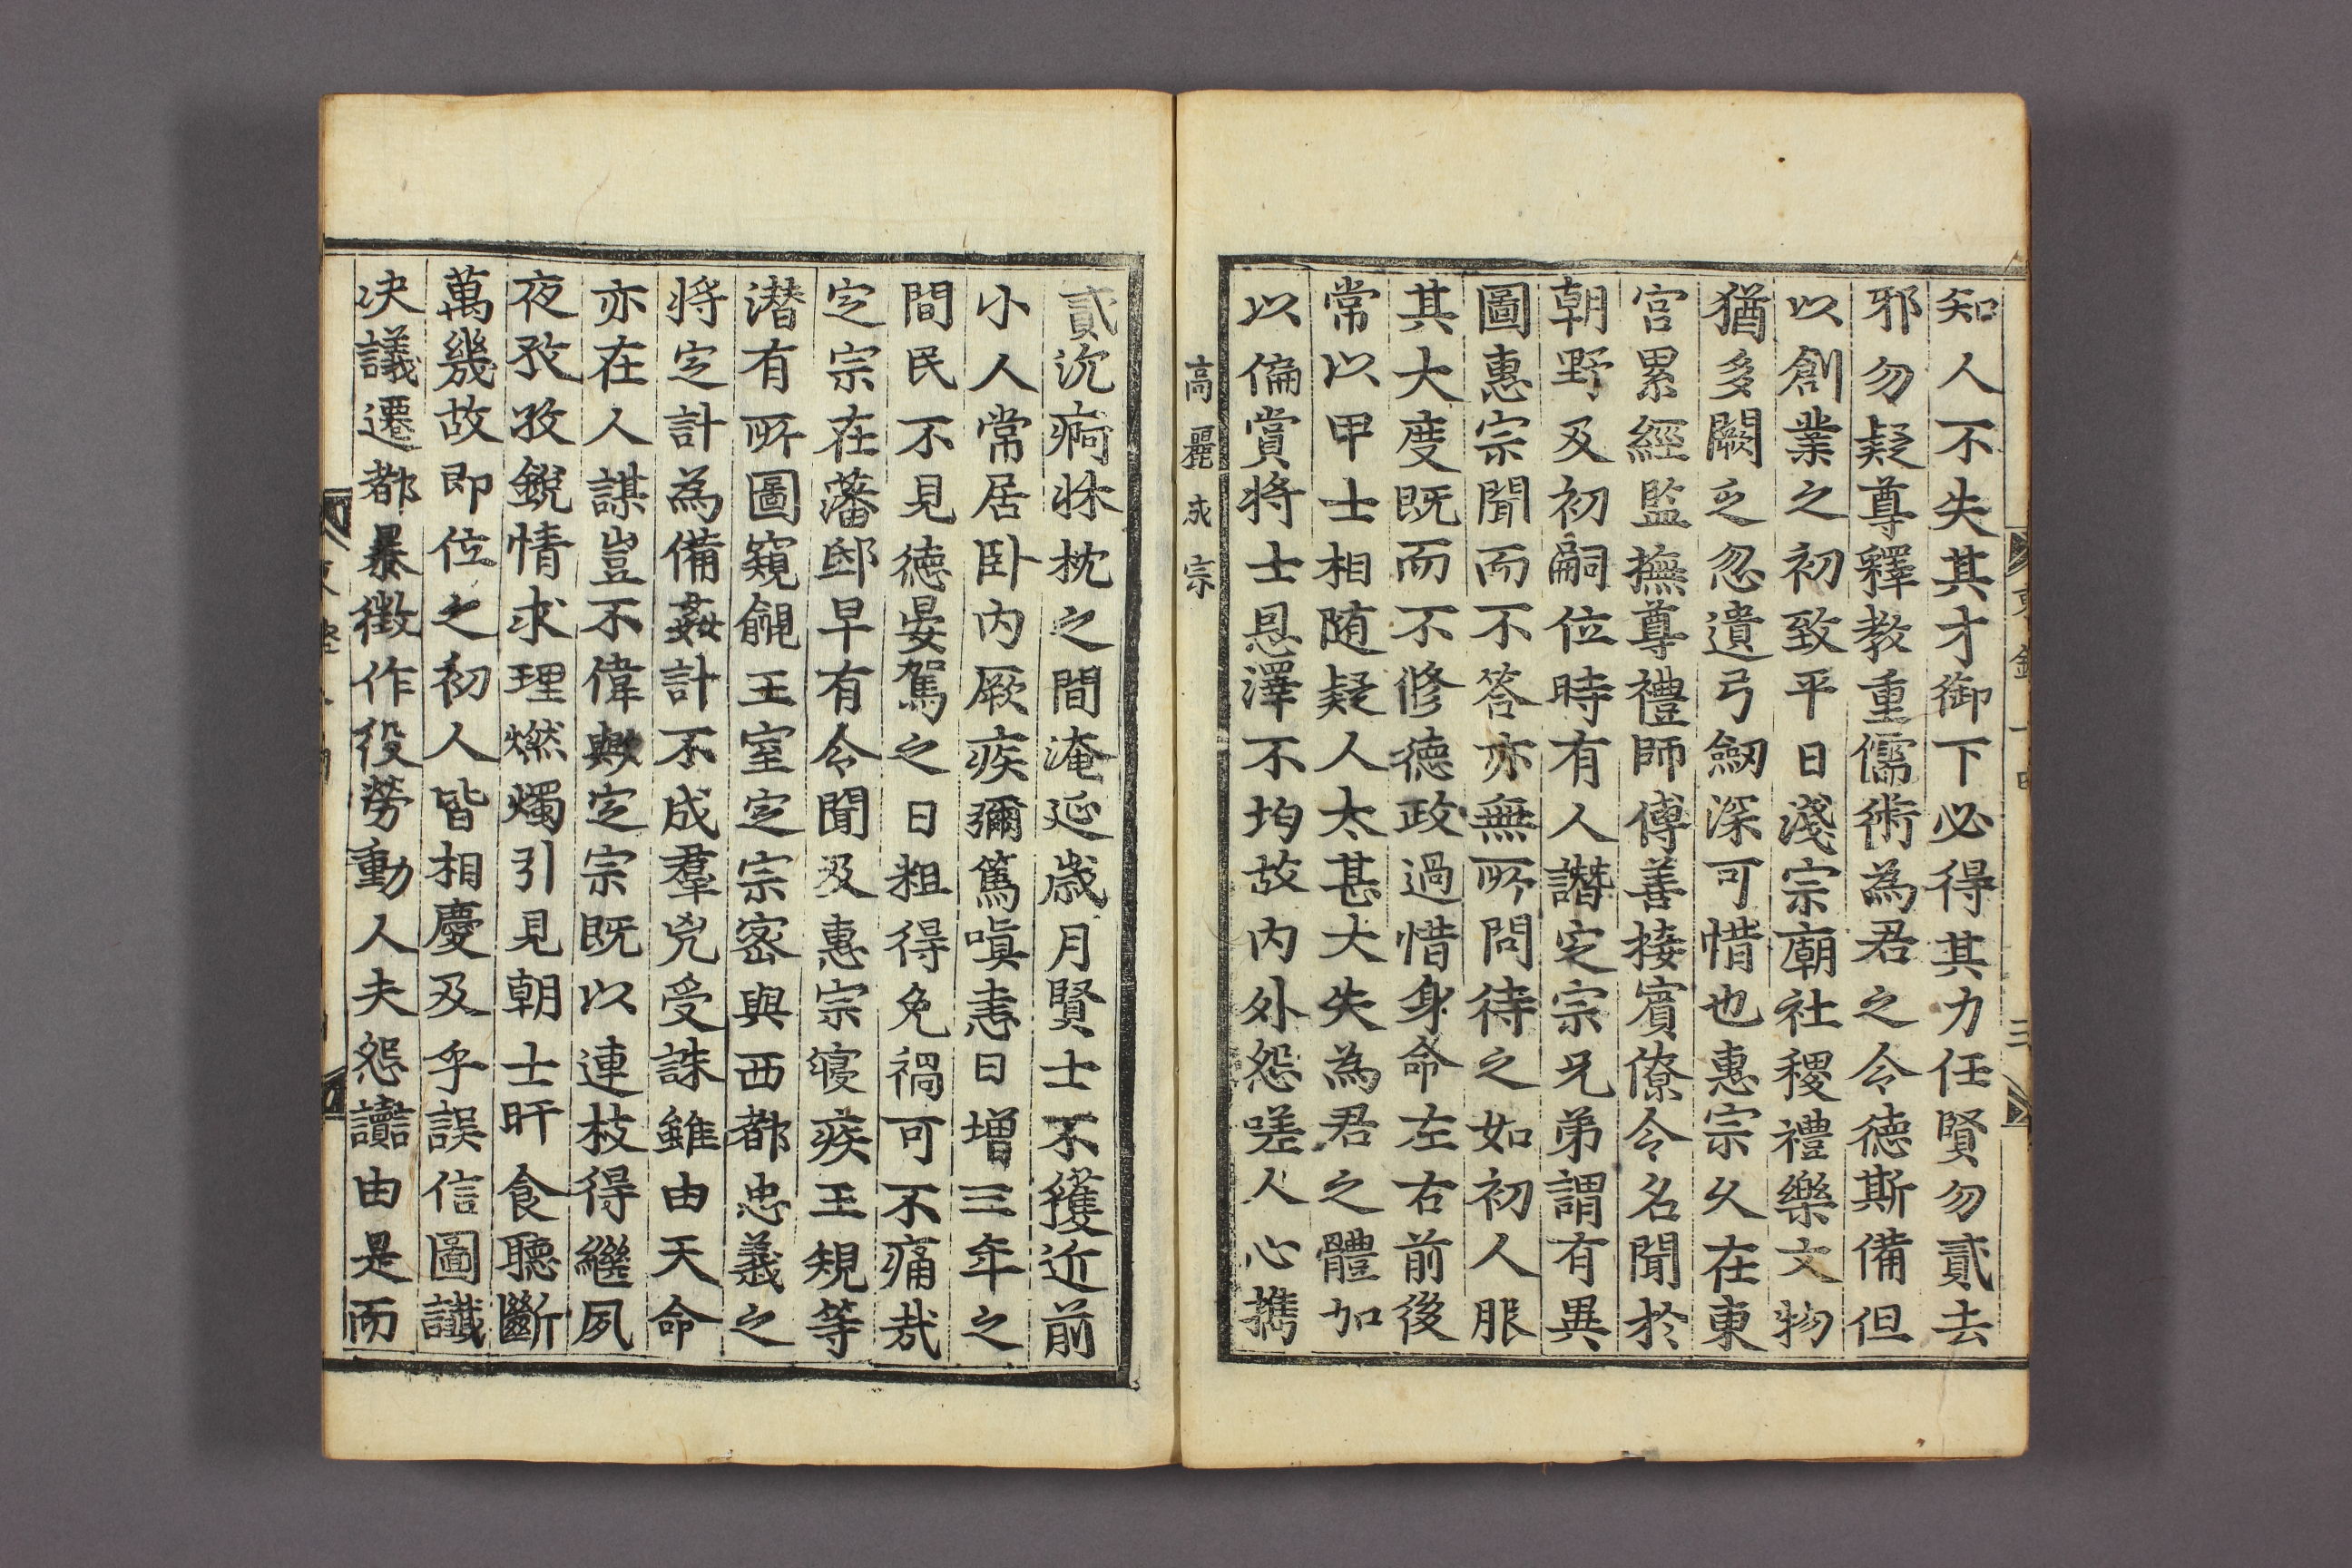 知人不失其才御下必得其力任賢勿貳去
邪勿疑尊釋教重儒術為君之令德斯備但
以創業之初致平日淺宗廟社稷禮樂文物
猶多闕乏忽遺弓劒深可惜也惠宗久在東
宮累經監撫尊禮師傅善接賓僚令名聞於
朝野及初嗣位時有人譖定宗兄弟謂有異
圖惠宗聞而不答亦無所問待之如初人服
其大度既而不修德政過惜身命左右前後
常以甲士相随疑人太甚大失為君之體加
以偏賞将士恩澤不均故内外怨嗟人心携
高麗成宗
貳沉痾牀枕之間淹延歲月賢士不獲近前
小人常居卧内厥疾彌篤嗔恚日增三年之
間民不見德晏駕之日粗得免禍可不痛哉
定宗在藩邸早有令聞及惠宗寢疾王規等
潛有所圖窺覦王室定宗密與西都忠義之
将定計為備姦計不成羣兇受誅雖由天命
亦在人謀豈不偉歟定宗既以連枝得繼夙
夜孜孜銳情求理燃燭引見朝士旰食聽斷
萬幾故即位之初人皆相慶及乎誤信圖讖
决議遷都暴徵作役勞動人夫怨讟由是而